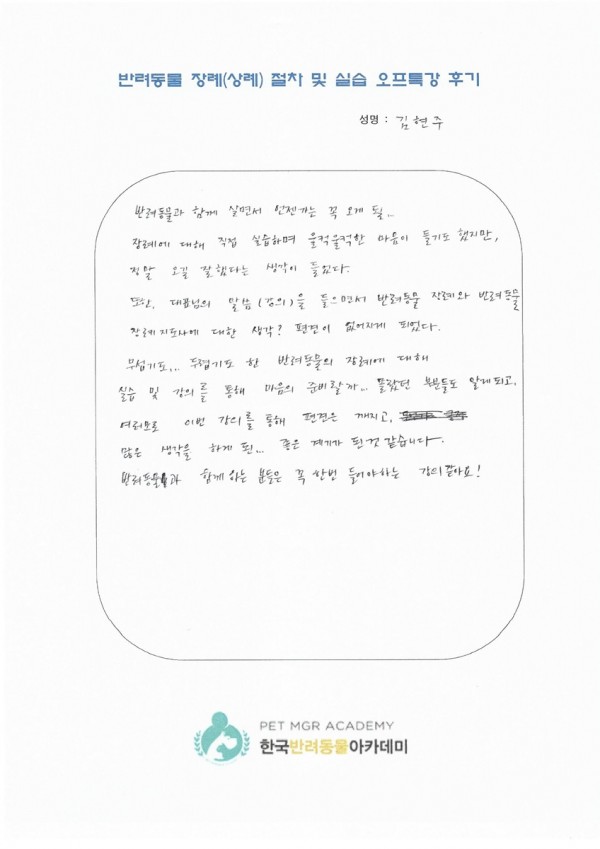 반려동물 장례(상례) 절차 및 실습 오프특강 후기
성명 : 김현주
반려동물과 함께 살면서 언젠가는 꼭 오게 될..
장례에 대해 직접 실습하며 울컥울컥한 마음이 들기도 했지만,
정말 오길 잘했다는 생각이 들었다.
또한, 대표님의 말씀(강의)을 들으면서 반려동물 장례와 반려동물
장례지도사에 대한 생각? 편견이 없어지게 되었다.
무섭기도... 두렵기도 한 반려동물의 장례에 대해
실습 및 강의를 통해 마음의 준비랄까.. 몰랐던 부분들도 알게되고,
여러모로 이번 강의를 통해 편견은 깨지고,
많은 생각을 하게 된... 좋은 계기가 된것 같습니다.
반려동물과 함께 하는 분들은 꼭 한번 들어야하는 강의 같아요!
PET MGR ACADEMY
한국반려동물아카데미